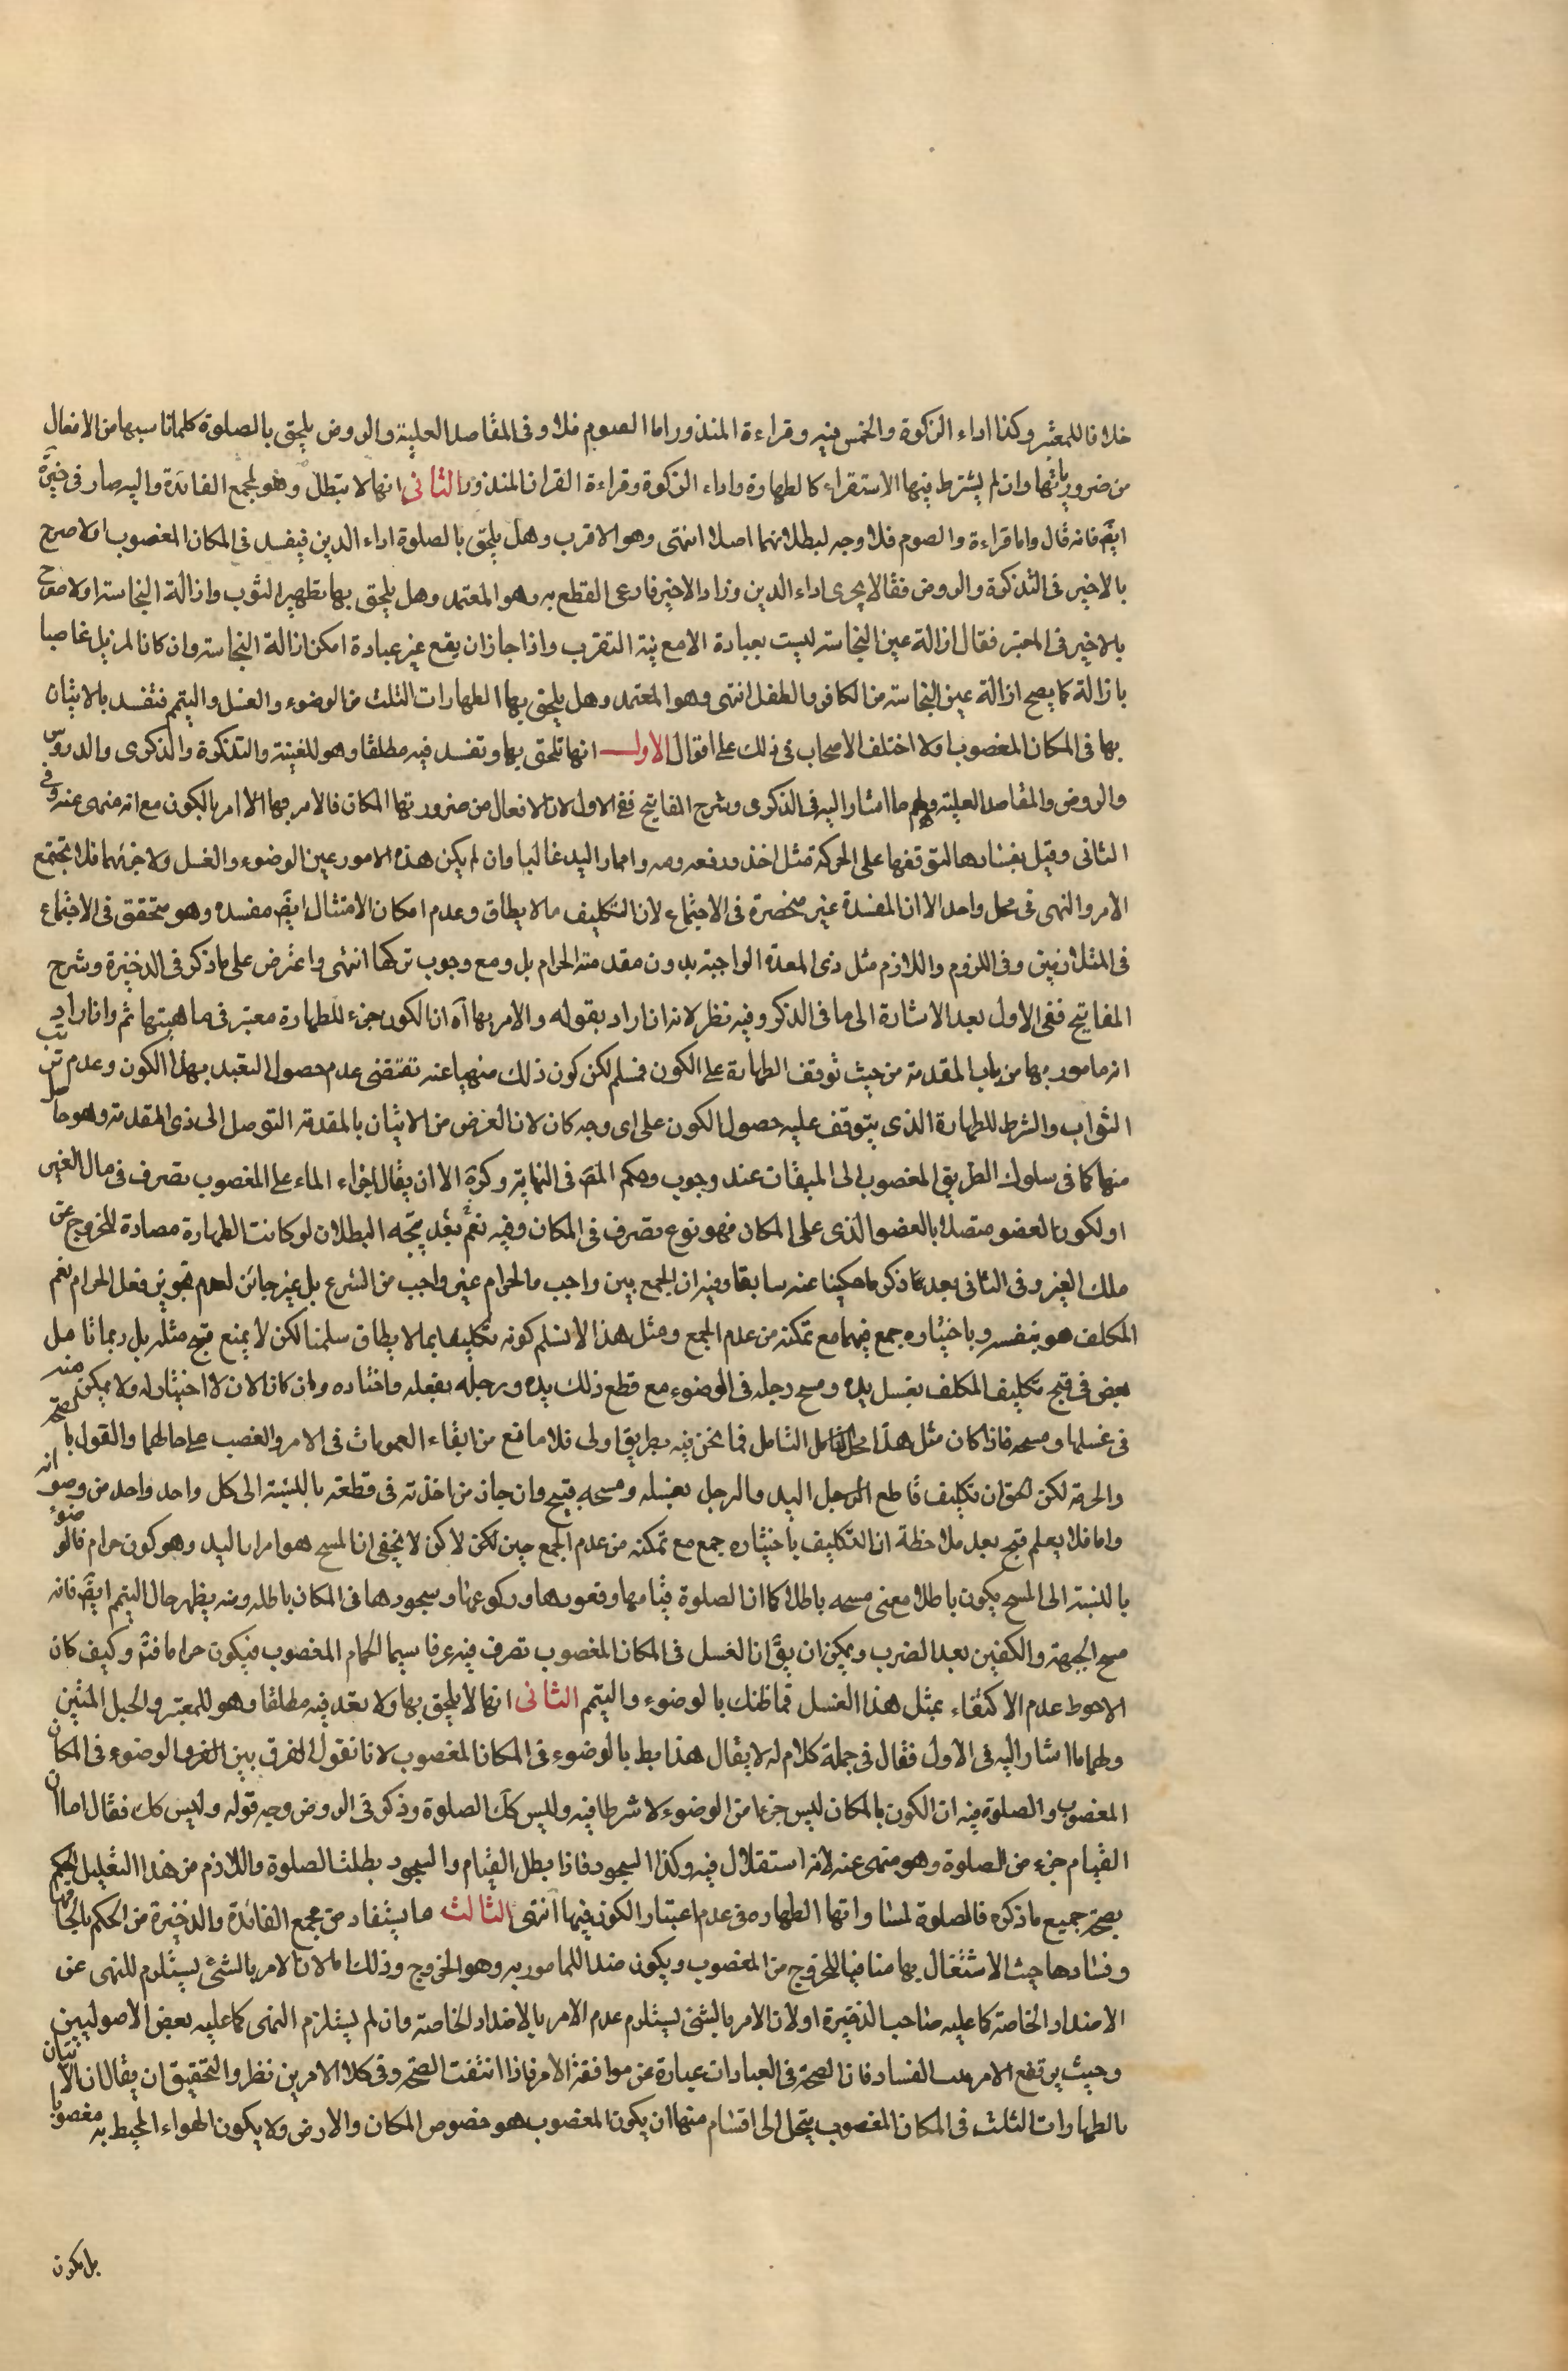 خلافا للمعتبر وكذا اداء الزكوة والخمس فيه وقراءة المنذور اما الصوم فلا وفى المقاصد العلية والروض يلحق بالصلوة كلما ناسبها من الافعال
من ضرورياتها وان لم يشترط فيها الاستقرار كالطهارة واداء الزكوة وقراءة القران المنذور الثانى انها لا تبطل وهو لمجمع الفائدة واليه صار فى
ايضً فانه قال واما قراءة والصوم فلا وجه لبطلانهما اصلا انتهى وهو الاقرب وهل يلحق بالصلوة اداء الدين فيفسد فى المكان المغصوب او لا صرح
بالاخير فى التذكرة والروض فقالا يجرى اداء الدين وزاد الاخير فادعى القطع به وهو المعتمد وهل يلحق بها تطهير الثوب وازالة النجاسة او لا صرح
بالاخير فى المعتبر فقال ازالة عين النجاسة ليست بعبادة الا مع نية التقرب واذا جاز ان يقع غير عبادة امكن ازالة النجاسة وان كان المزيل غاصبا
بازالة كما يصح ازالة عين النجاسة من الكافر والطفل انتهى وهو المعتمد وهل يلحق بها الطهارات الثلث من الوضوء والغسل والتيمم فتفسد بالاتيان
بها فى المكان المغصوب او لا اختلف الاصحاب فى ذلك على اقوال الاول انها تلحق بها وتفسد فيه مطلقا وهو للغنية والتذكرة والذكرى والدروس
والروض والمقاصد العلية ولهم ما اشار اليه فى الذكرى وشرح المفاتيح ففى الاول لان الافعال من ضرورتها المكان فالامر بها امر بالكون مع انه منهى عنه وفى
الثانى وقيل بفسادها لتوقفها على الحركة مثل اخذ ورفعه ومه وامرار اليد غالبا وان لم يكن هذه الامور عين الوضوء والغسل ولا جزئهما فلا يجتمع
الامر والنهى فى محل واحد الا ان المفسدة غير منحصرة فى الاجتماع لان التكليف ما لا يطاق وعدم امكان الامتثال ايضً مفسدة وهو متحقق فى الاجتماع
فى المتلازمين وفى اللزوم واللازم مثل ذى المقدمة الواجبة بدون مقدمته الحرام بل ومع وجوب تركها انتهى واعترض على ما ذكر فى الذخيرة وشرح
المفاتيح ففى الاول بعد الاشارة الى ما فى الذكرى وفيه نظر لانه ان اراد بقوله والامر بها آه ان الكون جزء للطهارة معتبر فى ماهيتها ثم وان اراد
انه مامور بها من باب المقدمة من حيث توقف الطهارة على الكون فمسلم لكن كون ذلك منهيا عنه تقتضى عدم حصول التعبد بهذا الكون وعدم ترتب
الثواب والشرط للطهارة الذى يتوقف عليه حصول الكون على اى وجه كان لان الغرض من الاتيان بالمقدمة التوصل الى ذى المقدمة وهو حاصل
منها كما فى سلوك الطريق المغصوب الى الميقات عند وجوب وحكم المصَ فى النهاية وكرَهَ الا ان يقال اجراء الماء على المغصوب تصرف فى مال الغير
او لكون العضو متصلا بالعضو الذى على المكان فهو نوع تصرف فى المكان وفيه نعم بعد يتجه البطلان لو كانت الطهارة مصادة للخروج عن
ملك الغير وفى الثانى بعد ما ذكر ما حكينا عنه سابقا وفيه ان الجمع بين واجب والحرام غير واجب من الشرع بل غير جائز لعدم تجويز فعل الحرام نعم
المكلف هو بنفسه وباختياره جمع فيهما مع تمكنه من عدم الجمع ومثل هذا لا نسلم كونه تكليفا بما لا يطاق سلمنا لكن لا يمنع قبح مثله بل ربما تامل
بعض فى قبح تكليف المكلف بغسل يده ومسح رجله فى الوضوء مع قطع ذلك يده ورجله بفعله واختياره وان كان الان لا اختيار له ولا يمكن منه
فى غسلها ومسحه فاذا كان مثل هذا محل التامل فما نحن فيه بطريق اولى فلا مانع من ابقاء العمومات فى الامر والغصب على حالهما والقول بالصحة
والحرمة لكن الحق ان تكليف قاطع اليد والرجل بغسله ومسحه قبيح وان جاز من اخذته فى قطعه بالنسبة الى كل واحد واحد من وضو انه
واما فلا يعلم قبح بعد ملاحظة ان التكليف باختياره جمع مع تمكنه من عدم الجمع حين لكن لا يخفى ان المسح هو امرار اليد وهو كون حرام فالوضوء
بالنسبة الى المسح يكون باطلا معنى مسحه باطلا كما ان الصلوة قيامها وقعودها وركوعها وسجودها فى المكان باطله ومنه يظهر حال التيمم ايضً فانه
مسح الجبهة والكفين بعد الضرب ويمكن ان يقَ ان الغسل فى المكان المغصوب تصرف فيه عرفا سيما الحمام المغصوب فيكون حراما فتم وكيف كان
الاحوط عدم الاكتفاء بمثل هذا الغسل فما ظنك بالوضوء والتيمم الثانى انها لا يلحق بها ولا تفسد فيه مطلقا وهو للمعتبر والحبل المتين
ولهما ما اشار اليه فى الاول فقال فى جملة كلام له لا يقال هذا يبط بالوضوء فى المكان المغصوب لانا نقول الفرق بين الوضوء فى المكان
المغصوب والصلوة فيه ان الكون بالمكان ليس جزءا من الوضوء لا شرطا فيه وليس كذلك الصلوة وذكر فى الروض وجه قوله وليس كك فقال اما ان
القيام جزء من الصلوة وهو منهى عنه لانه استقلال فيه وكذا السجود فاذا بطل القيام والسجود بطلت الصلوة واللازم من هذا التعليل الحكم
بصحة جميع ما ذكره فالصلوة لمساواتها الطهارة فى عدم اعتبار الكون فيها انتهى الثالث ما يستفاد من مجمع الفائدة والذخيرة من الحكم بالحاقها
وفسادها حيث الاشتغال بها منافيا للخروج من المغصوب ويكون ضدا للمامور به وهو الخروج وذلك اما لان الامر بالشئ يستلزم للنهى عن
الاضداد الخاصة كما عليه صاحب الذخيرة او لان الامر بالشئ يستلزم عدم الامر بالاضداد الخاصة وان لم يستلزم النهى كما عليه بعض الاصوليين
وحيث يرتفع الامر الفساد فان الصحة فى العبادات عبارة عن موافقة الامر فاذا انتفت الصحة وفى كلا الامرين نظر والتحقيق ان يقال ان الاتيان
بالطهارات الثلث فى المكان المغصوب ينحل الى اقسام منها ان يكون المغصوب هو خصوص المكان والارض ولا يكون الهواء المحيط به مغصوبا
بل يكون